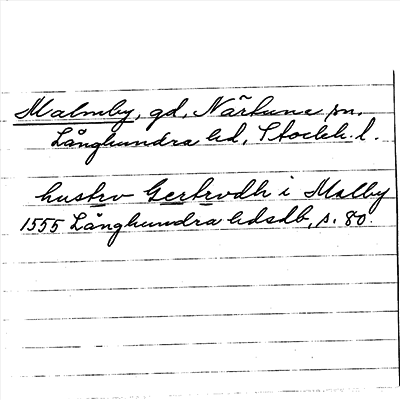 Malmby, gd, Närtuna sn.
Långhundra hd, Stockh. l.
hustrv Gertrvdh i Malby
1555 Långhundra hdsdb, s. 80.